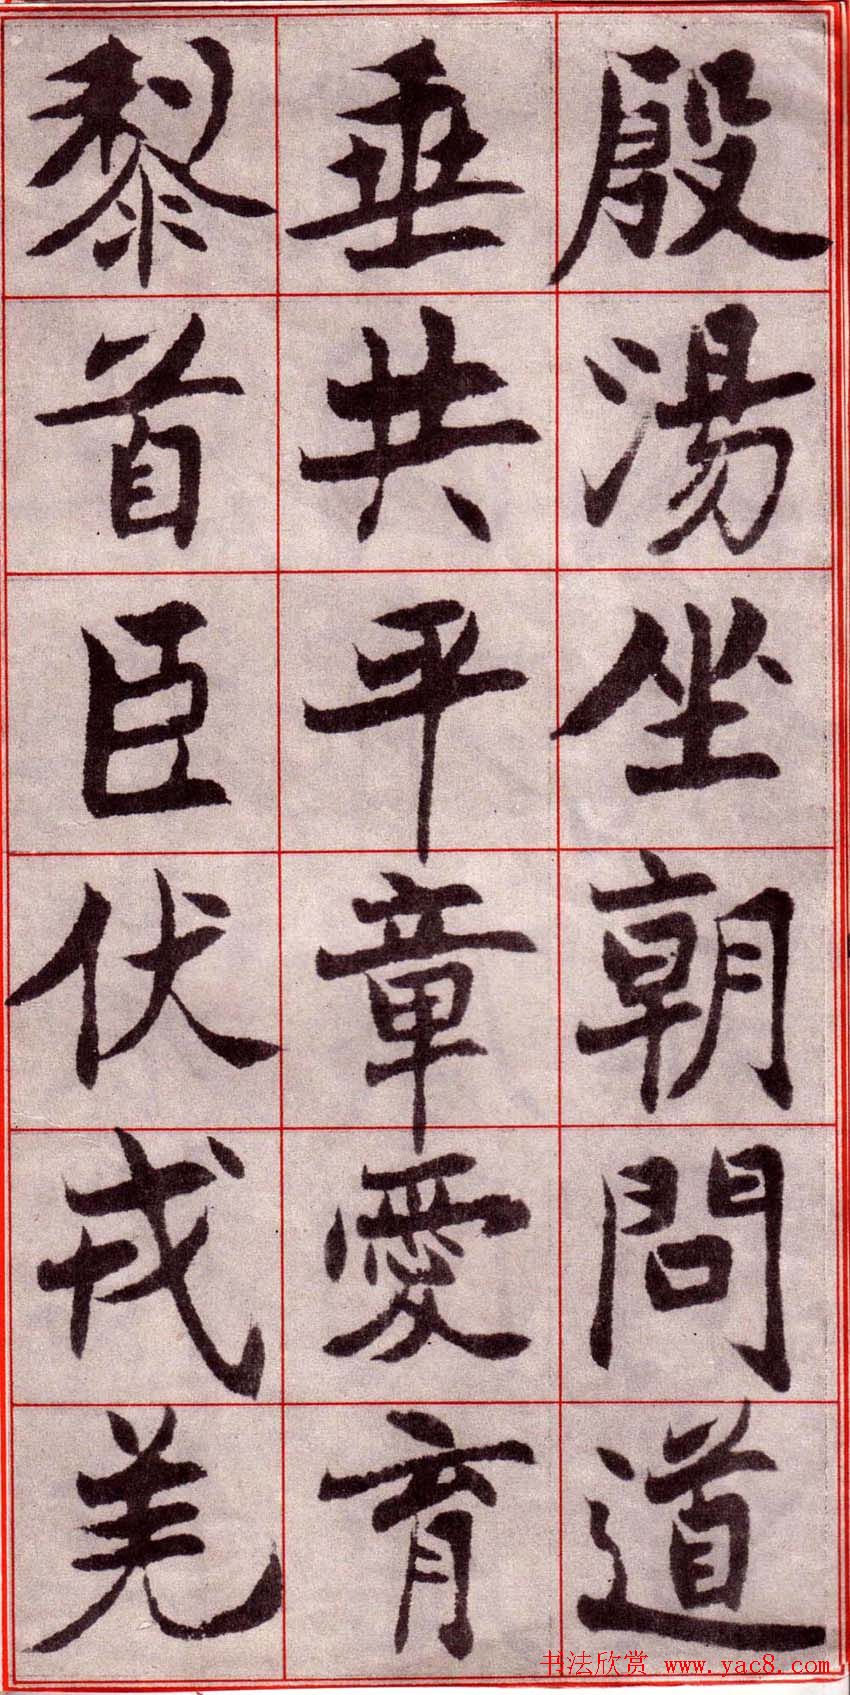 殷湯坐朝問道
垂共平章愛育
黎首臣伏戎羌
书法欣赏 www.yac8.com